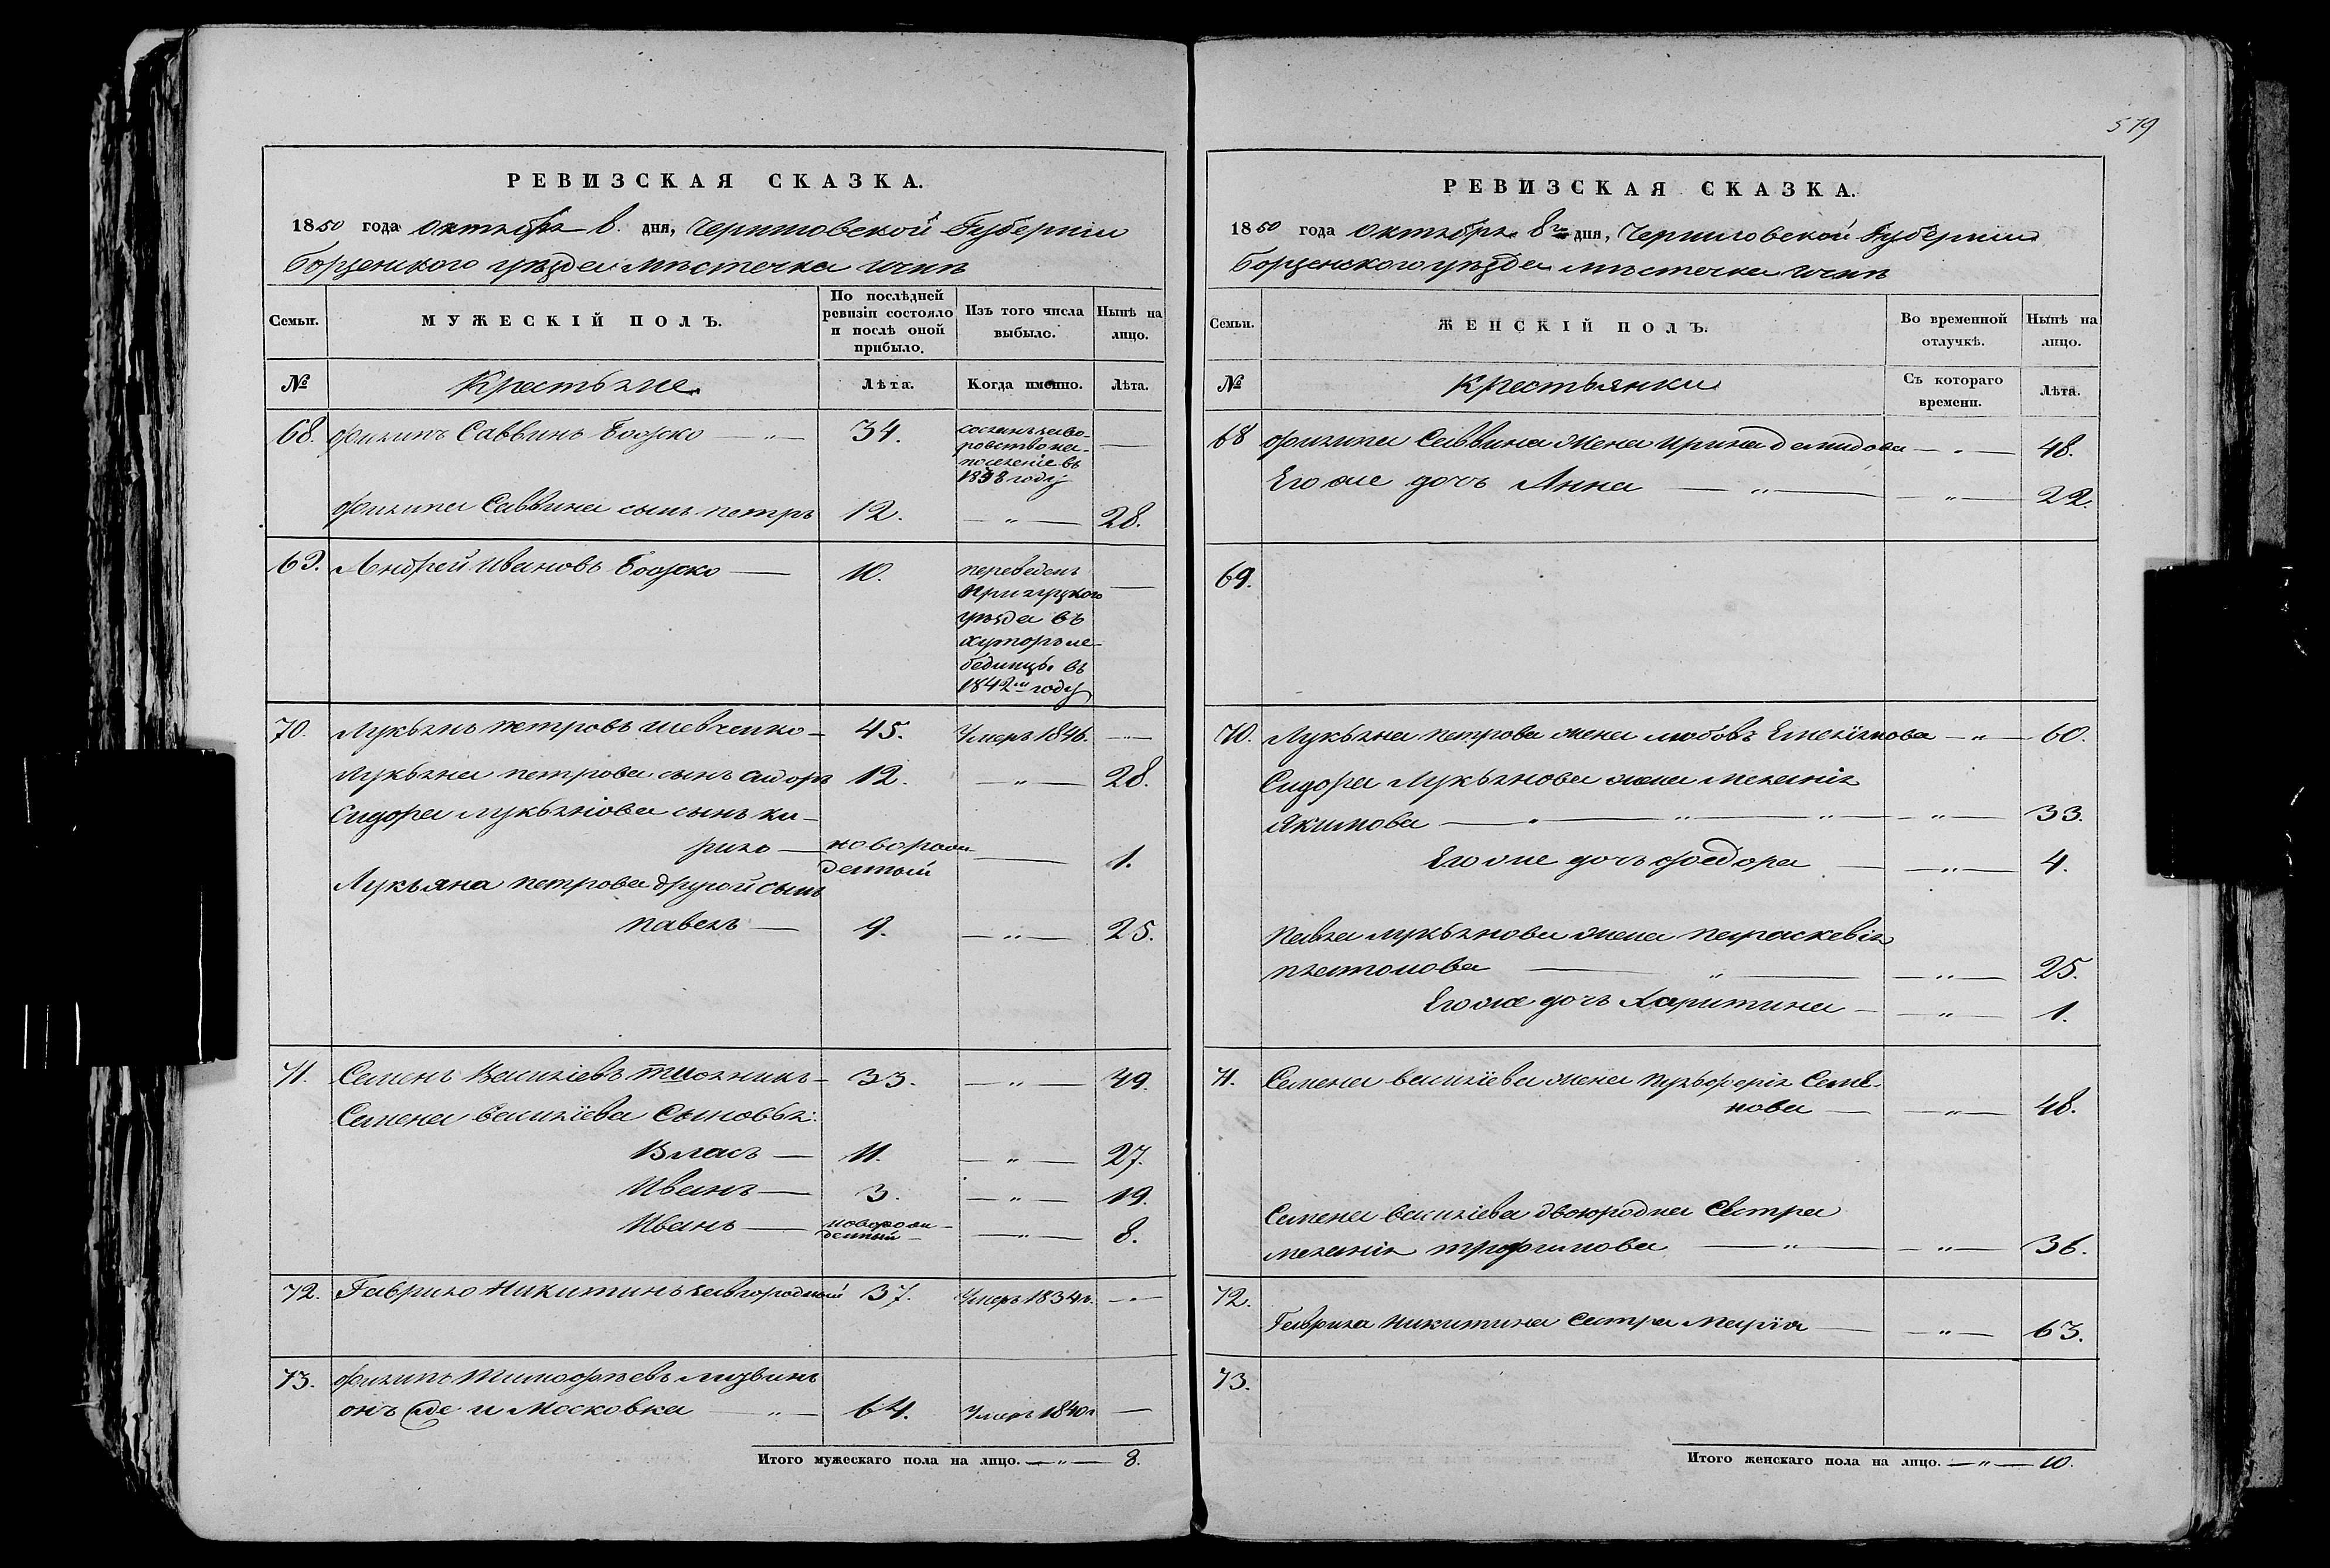 579
РЕВИЗСКАЯ СКАЗКА.
1850 года октября 8. дня, Черниговской Губерніи
Борзенского уѣзда мѣстечка Ични
Семьи.
МУЖЕСКІЙ ПОЛЪ.
По послѣдней ревизіи состояло и послѣ оной прибыло.
Изъ того числа выбыло.
Нынѣ на лицо.
№ Крестьяне Лѣта. Когда именно. Лѣта.
68. Филипъ Саввинъ Божко — „ — 34. сосланъ за во-
ровство на
поселеніе въ
1838 году —
Филипа Саввина сынъ петръ 12. — „ — 28.
69. Андрей Ивановъ Божко — 10. переведенъ
прилуцкого
уѣзда въ
хуторъ ле-
бединць въ
1842м году —
70. Лукьянъ петровъ шевченко — 45. Умеръ 1846. — „ —
Лукьяна петрова сынъ сидоръ 12. — „ — 28.
Сидора лукьянова сынъ ки-
рило — новорож-
денный — 1.
Лукьяна петрова другой сынъ
павелъ — 9. — „ — 25.
71. Семенъ Василіевъ — 33. — „ — 49.
Семена василіева Сыновья:
Власъ — 11. — „ — 27.
Иванъ — 3. — „ — 19.
Иванъ — новорож-
денный — — „ — 8.
72. Гаврило Никитинъ завгородный 37. Умеръ 1834г. — „ —
73. Филипъ Тимофѣевъ лизвинъ
онъ же и Московка — „ — 64. Умеръ 1840г —
Итого мужескаго пола на лицо. — „ — 8.
РЕВИЗСКАЯ СКАЗКА.
1850 года Октября 8го дня, Черниговской Губерніи
Борзенского уѣзда мѣстечка Ични
Семьи.
ЖЕНСКІЙ ПОЛЪ.
Во временной отлучкѣ.
Нынѣ на лицо.
№ Крестьянки Съ котораго времени. Лѣта.
68 Филипа Саввина жена Ирина демидова — „ — 48.
Его же дочь Анна — „ — — „ — 22.
69.
70. Лукьяна петрова жена любовь Емеліянова — „ — 60.
Сидора Лукьянова жена меланія
Якимова — „ — „ — „ — — „ — 33.
Его же дочь федора — — „ — 4.
Павла лукьянова жена параскевія
платонова — „ — — „ — 25.
Его же дочь Харитина — — „ — 1.
71. Семена василіева жена пульхерія Семе-
нова — — „ — 48.
Семена василіева двоюродна сестра
меланія трофимова — „ — — „ — 36.
72.
Гаврила Никитина Сестра Марія — — „ — 63.
73.
Итого женскаго пола на лицо. — „ — 10.